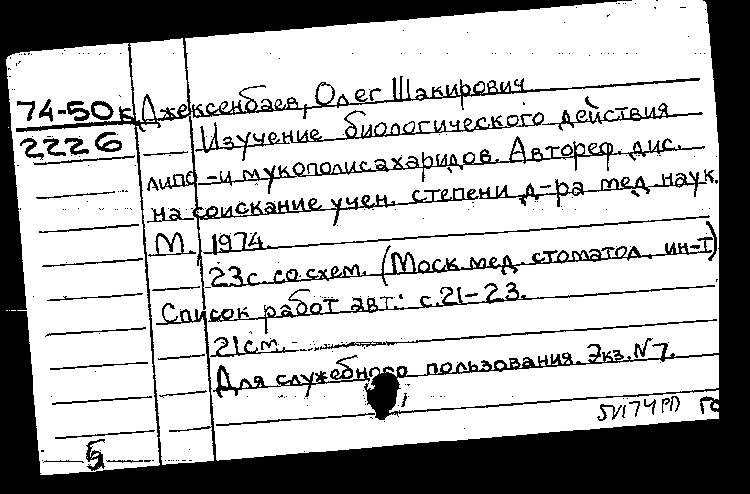 74-50к
2226
Джексенбаев, Олег Шакирович
Изучение биологического действия
липо-и мукополисахаридов. Автореф. дис.
на соискание учен. степени д-ра мед. наук.
М., 1974.
23с. со схем. (Моск. мед. стоматол. ин-т)
Список работ авт.: с.21-23.
21см.
Для служебного пользования. Экз. N7.
5